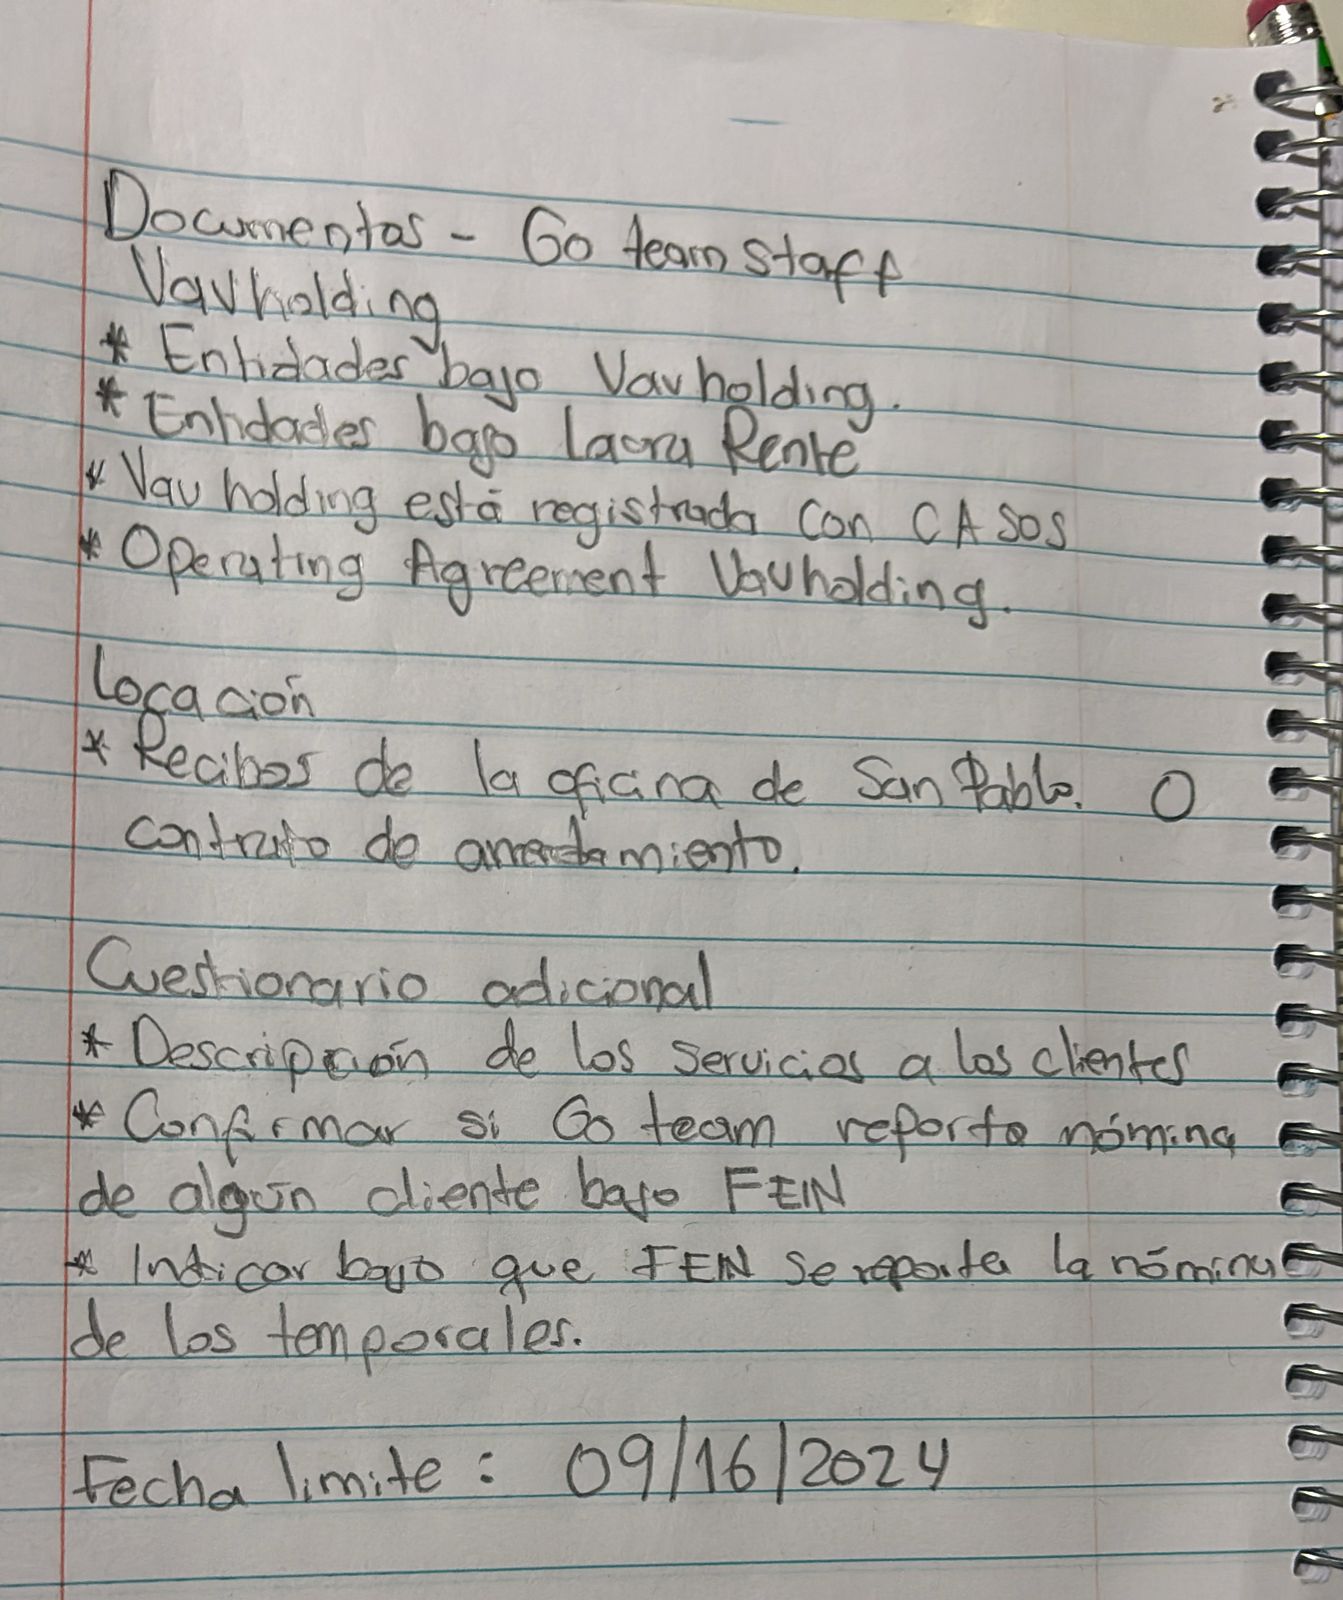 Documentos - Go team staff
Vavholding
* Entidades bajo Vavholding.
* Entidades bajo Laura Rente
* Vav holding está registrada con CA SOS
* Operating Agreement Vavholding.
Locación
* Recibos de la oficina de San Pablo. O
contrato de arrendamiento.
Cuestionario adicional
* Descripción de los servicios a los clientes
* Confirmar si Go team reporta nómina
de algún cliente bajo FEIN
* Indicar bajo que FEIN se reporta la nómina
de los temporales.
Fecha limite : 09/16/2024